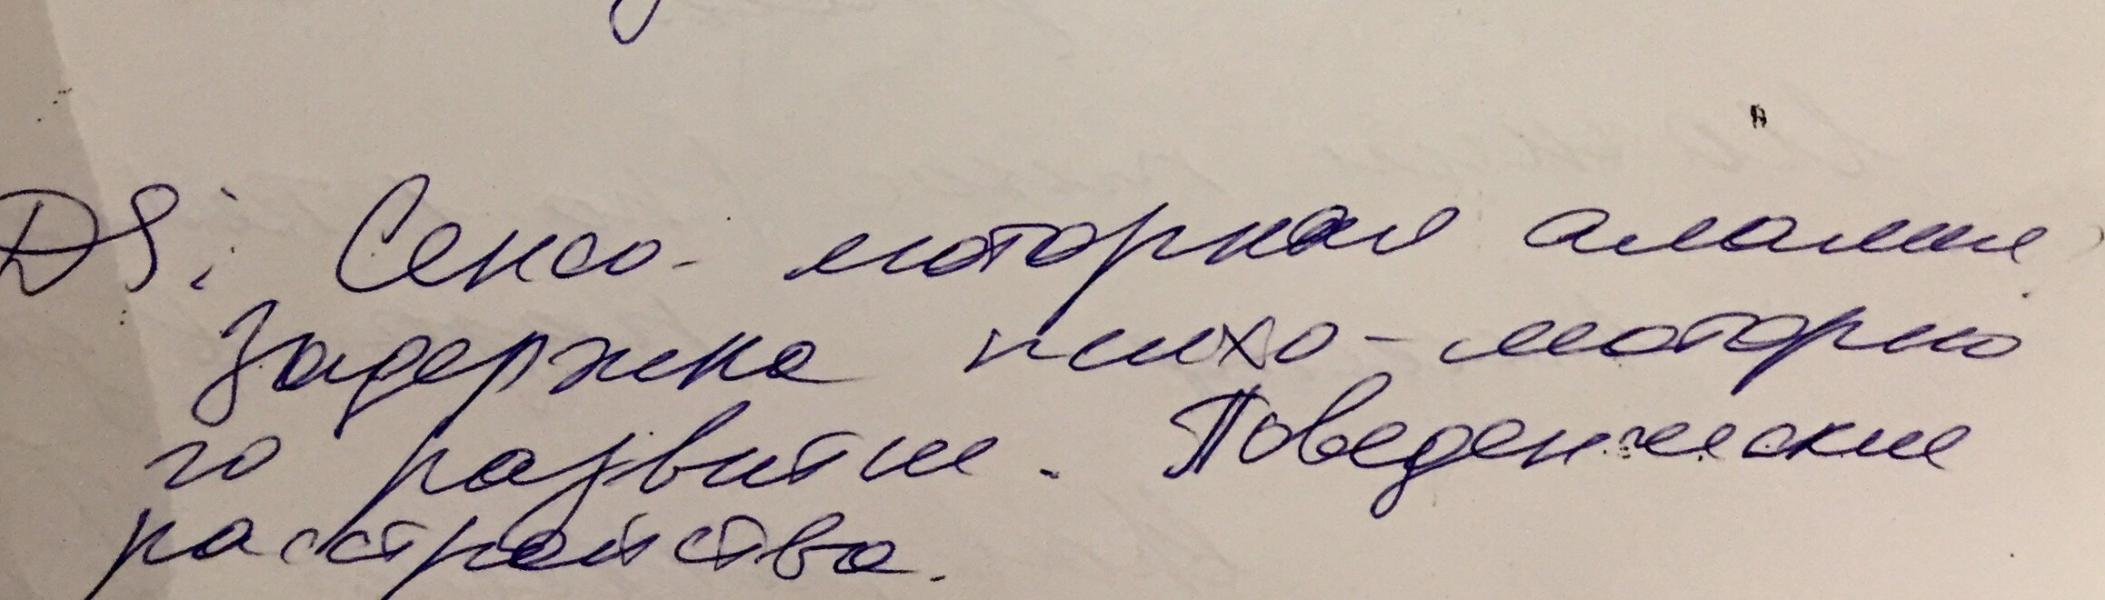 DS: Сенсо-моторная алалия
Задержка психо-моторно
го развития. Поведенческие
расстройства.